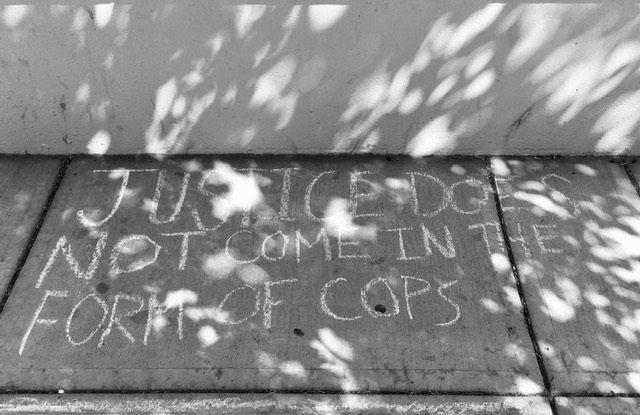 JUSTICE DOES
NOT COME IN THE
FORM OF COPS